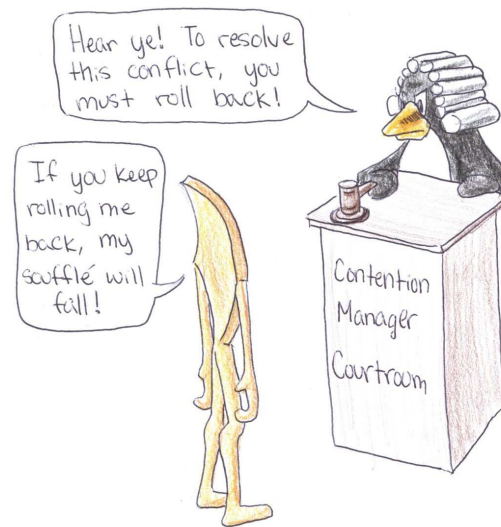 Hear ye! To resolve
this conflict, you
must roll back!
If you keep
rolling me
back, my
soufflé will
fall!
Contention
Manager
Courtroom